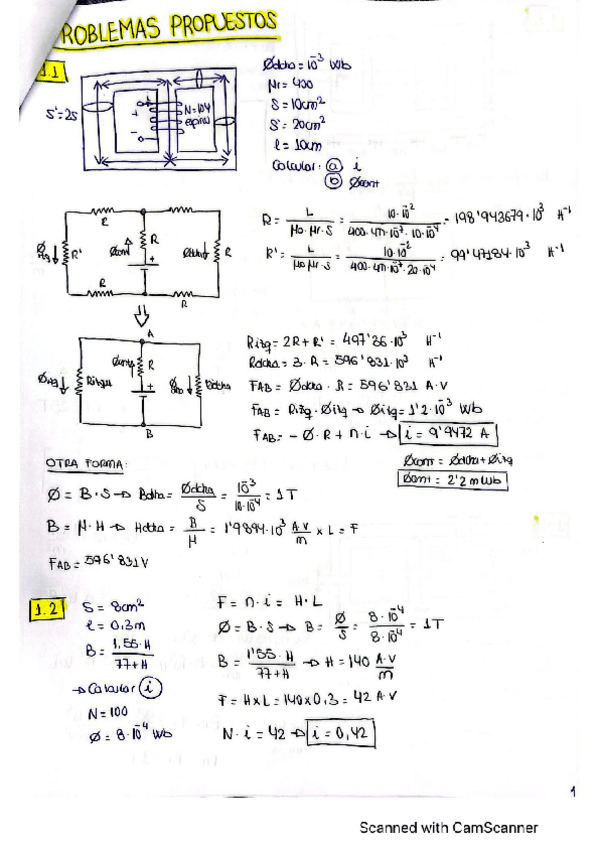 PROBLEMAS PROPUESTOS
1.1
S'=2S
N=104
espiras
Ødcha = 10^-3 Wb
Mr = 400
S = 10cm²
S' = 20cm²
l = 10cm
Calcular: (a) i
(b) Øcent
R
R
Øizq
R'
Øcent
R
Ødcha
R
R
R
R = L / (Mo·Mr·S) = 10·10^-2 / (400·4π·10^-7·10·10^-4) = 198'943679·10³ H^-1
R' = L / (Mo·Mr·S) = 10·10^-2 / (400·4π·10^-7·20·10^-4) = 99'47184·10³ H^-1
A
Øizq
Rizq
Øcent
R
Rdcha
B
Rizq = 2R + R' = 497'36·10³ H^-1
Rdcha = 3·R = 596'831·10³ H^-1
FAB = Ødcha · R = 596'831 A·V
FAB = Rizq · Øizq → Øizq = 1'2·10^-3 Wb
FAB = - Ø·R + n·i → i = 9'9472 A
Øcent = Ødcha + Øizq
Øcent = 2'2 mWb
OTRA FORMA:
Ø = B·S → Bdcha = Ødcha / S = 10^-3 / 10·10^-4 = 1T
B = M·H → Hdcha = B / M = 1'9894·10³ A·V/m × L = F
FAB = 596'831V
1.2
S = 8cm²
l = 0,3m
B = 1,55·H / 77+H
→ Calcular (i)
N = 100
Ø = 8·10^-4 Wb
F = n·i = H·L
Ø = B·S → B = Ø/S = 8·10^-4 / 8·10^-4 = 1T
B = 1'55·H / 77+H → H = 140 A·V/m
F = H×L = 140×0,3 = 42 A·V
N·i = 42 → i = 0,42
1
Scanned with CamScanner